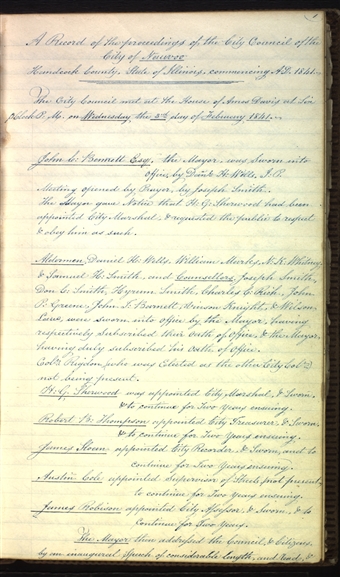 1
A Record of the proceedings of the City Council of the
City of Nauvoo
Handcock County, State of Illinois, commencing A.D. 1841.
The City Council met at the House of Amos Davis at Six
o'Clock P. M. on Wednesday the 3rd day of February 1841.
John C. Bennett Esq., the Mayor was Sworn into
office, by Daniel H. Wells, J. P.
Meeting opened by Prayer, by Joseph Smith.
The Mayor gave Notice that H. G. Sherwood had been
appointed City Marshal, & requested the public to respect
& obey him as such.
Aldermen, Daniel H. Wells, William Marks, N. K. Whitney,
& Samuel H. Smith, and Counsellors, Joseph Smith,
Don C. Smith, Hyrum Smith, Charles C. Rich, John
P. Greene, John T. Barnett, Vinson Knight, & Wilson
Law, were sworn into office by the Mayor, having
respectively subscribed their Oath of Office, & the Mayor
having duly subscribed his Oath of Office.
Sidney Rigdon, who was Elected as the other City
not being present.
H. G. Sherwood was appointed City Marshal, & Sworn,
& to continue for Two Years ensuing.
Robert B. Thompson appointed City Treasurer, & Sworn
& to continue for Two Years ensuing.
James Sloan appointed City Recorder, & Sworn, and to
continue for Two Years ensuing.
Austin Cole appointed Supervisor of Streets (not present)
to continue for Two Years ensuing.
James Robison appointed City Assessor, & Sworn, & to
Continue for Two Years.
The Mayor then addressed the Council, & Citizens,
by an inaugural Speech of considerable length, and read, &